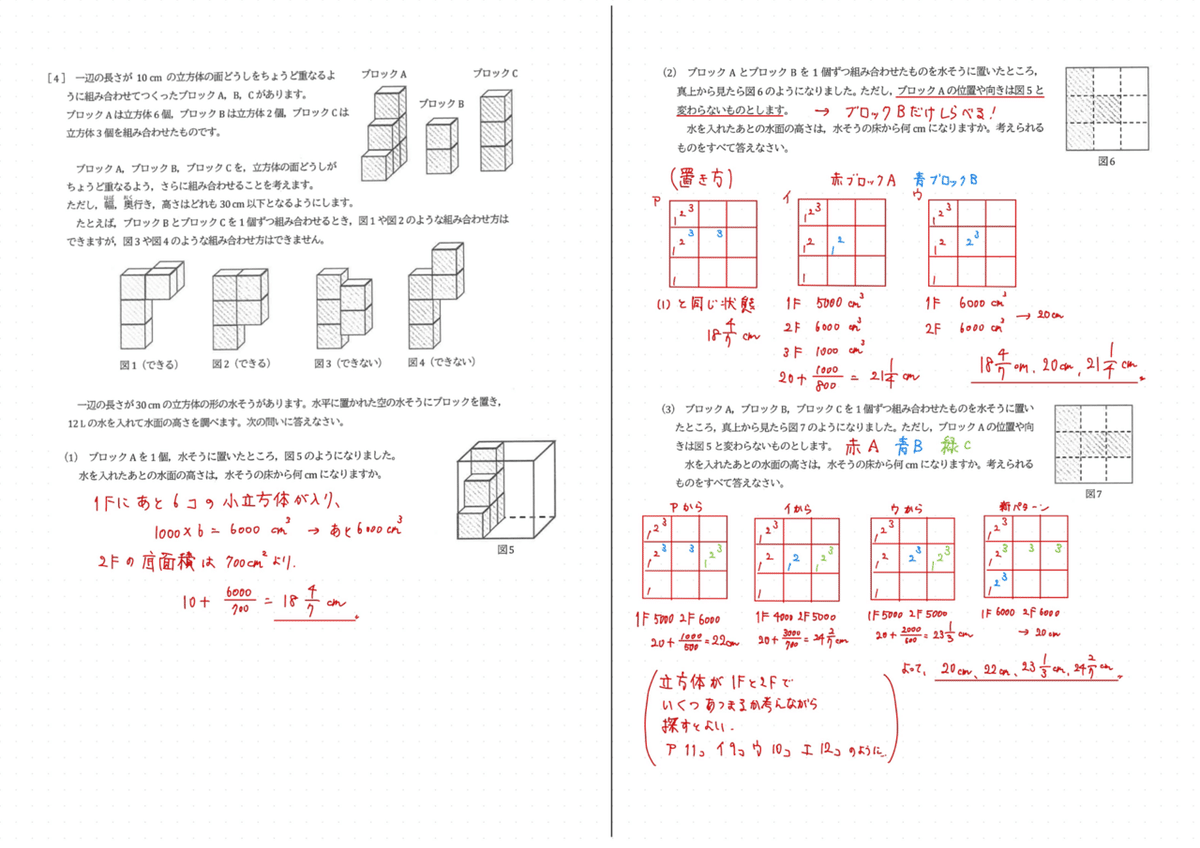 ［4］ 一辺の長さが 10 cm の立方体の面どうしをちょうど重なるよ
うに組み合わせてつくったブロック A，B，C があります。
ブロック A は立方体 6 個，ブロック B は立方体 2 個，ブロック C は
立方体 3 個を組み合わせたものです。
ブロック A
ブロック B
ブロック C
ブロック A，ブロック B，ブロック C を，立方体の面どうしが
ちょうど重なるよう，さらに組み合わせることを考えます。
はば おく
ただし，幅，奥行き，高さはどれも 30 cm 以下となるようにします。
たとえば，ブロック B とブロック C を 1 個ずつ組み合わせるとき，図 1 や図 2 のような組み合わせ方は
できますが，図 3 や図 4 のような組み合わせ方はできません。
図 1（できる）
図 2（できる）
図 3（できない）
図 4（できない）
一辺の長さが 30 cm の立方体の形の水そうがあります。水平に置かれた空の水そうにブロックを置き，
12 L の水を入れて水面の高さを調べます。次の問いに答えなさい。
（1） ブロック A を 1 個，水そうに置いたところ，図 5 のようになりました。
水を入れたあとの水面の高さは，水そうの床から何 cm になりますか。
図5
1Fにあと6コの小立方体が入り、
1000×6 = 6000 cm³ → あと6000cm³
2Fの底面積は700cm²より.
10 + 6000/700 = 18 4/7 cm 。
（2） ブロック A とブロック B を 1 個ずつ組み合わせたものを水そうに置いたところ，
真上から見たら図 6 のようになりました。ただし，ブロック A の位置や向きは図 5 と
変わらないものとします。 → ブロックBだけしらべる!
水を入れたあとの水面の高さは，水そうの床から何 cm になりますか。考えられる
ものをすべて答えなさい。
図6
(置き方)
赤ブロックA 青ブロックB
ア イ ウ
1 2 3 1 2 3 1 2 3
1 2 3 3 1 2 1 2 1 2 2 3
1 1 1
(1)と同じ状態
18 4/7 cm
1F 5000 cm³
2F 6000 cm³
3F 1000 cm³
20 + 1000/800 = 21 1/4 cm
1F 6000 cm³
2F 6000 cm³ → 20cm
18 4/7 cm、20cm、21 1/4 cm 。
（3） ブロック A，ブロック B，ブロック C を 1 個ずつ組み合わせたものを水そうに置い
たところ，真上から見たら図 7 のようになりました。ただし，ブロック A の位置や向
きは図 5 と変わらないものとします。 赤A 青B 緑C
水を入れたあとの水面の高さは，水そうの床から何 cm になりますか。考えられる
ものをすべて答えなさい。
図7
アから イから ウから 新パターン
1 2 3 1 2 3 1 2 3 1 2 3
1 2 3 3 1 2 3 1 2 1 2 1 2 3 1 2 2 3 1 2 3 1 2 3 3 3
1 1 1 1 2 3
1F 5000 2F 6000
20 + 1000/500 = 22cm
1F 4000 2F 5000
20 + 3000/700 = 24 2/7 cm
1F 5000 2F 5000
20 + 2000/600 = 23 1/3 cm
1F 6000 2F 6000
→ 20cm
よって、20cm、22cm、23 1/3 cm、24 2/7 cm 。
立方体が1Fと2Fで
いくつあつまるか考えながら
探すとよい.
ア 11コ イ 9コ ウ 10コ エ 12コ のように.